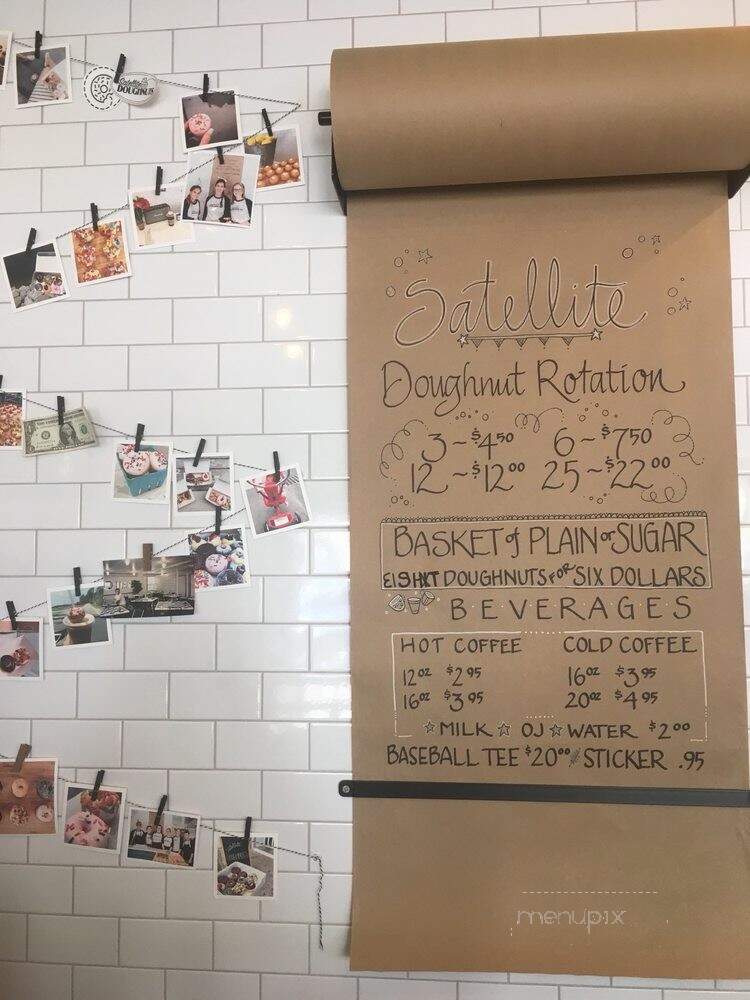 Satellite
DOUGHNUTS
Satellite
Doughnut Rotation
3 ~ $4 50 6 ~ $7 50
12 ~ $12 00 25 ~ $22 00
BASKET of PLAIN or SUGAR
EIGHT DOUGHNUTS FOR SIX DOLLARS
BEVERAGES
HOT COFFEE COLD COFFEE
12 oz $2 95 16 oz $3 95
16 oz $3 95 20 oz $4 95
☆ MILK ☆ OJ ☆ WATER $2 00
BASEBALL TEE $20 00 STICKER .95
menupix